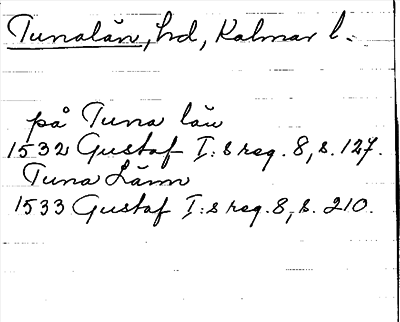 Tunalän, hd, Kalmar l.
på Tuna län
1532 Gustaf I:s reg. 8, s. 127.
Tuna Länn
1533 Gustaf I:s reg. 8, s. 210.